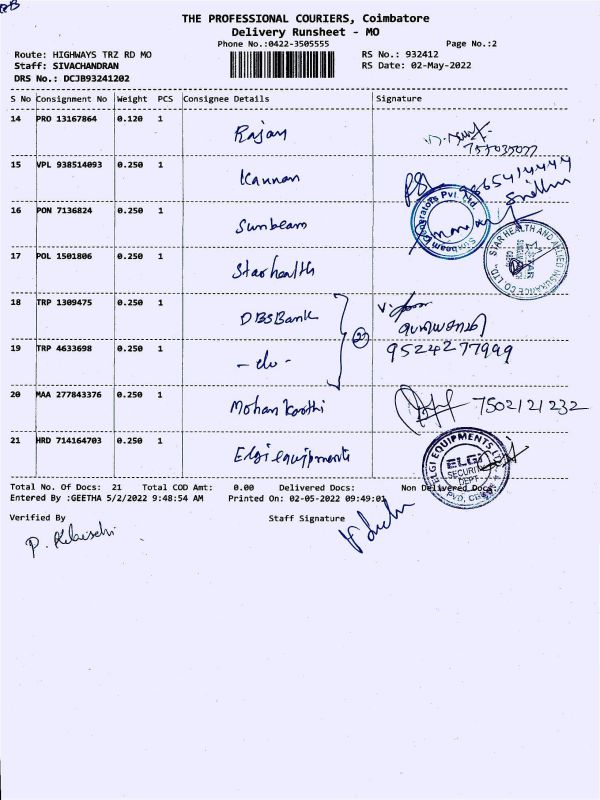 THE PROFESSIONAL COURIERS, Coimbatore
Delivery Runsheet - MO
Phone No.:0422-3505555
Page No.:2
Route: HIGHWAYS TRZ RD MO
RS No.: 932412
Staff: SIVACHANDRAN
RS Date: 02-May-2022
DRS No.: DCJB93241202
S No Consignment No Weight PCS Consignee Details Signature
14 PRO 13167864 0.120 1 Rajan
15 VPL 938514093 0.250 1 Kannan
16 PON 7136824 0.250 1 Sunbeam
17 POL 1501806 0.250 1 Starhealth
STAR HEALTH AND ALLIED INSURANCE CO. LTD.
18 TRP 1309475 0.250 1 DBS Bank
19 TRP 4633698 0.250 1 - do - 2 9524277999
20 MAA 277843376 0.250 1 Mohan Koothi 7502121232
21 HRD 714164703 0.250 1 Elgi equipments
ELGI EQUIPMENTS LTD
ELGI
SECURITY
DEPT
Total No. Of Docs: 21 Total COD Amt: 0.00 Delivered Docs: Non Delivered Docs
Entered By :GEETHA 5/2/2022 9:48:54 AM Printed On: 02-05-2022 09:49:01
Verified By Staff Signature